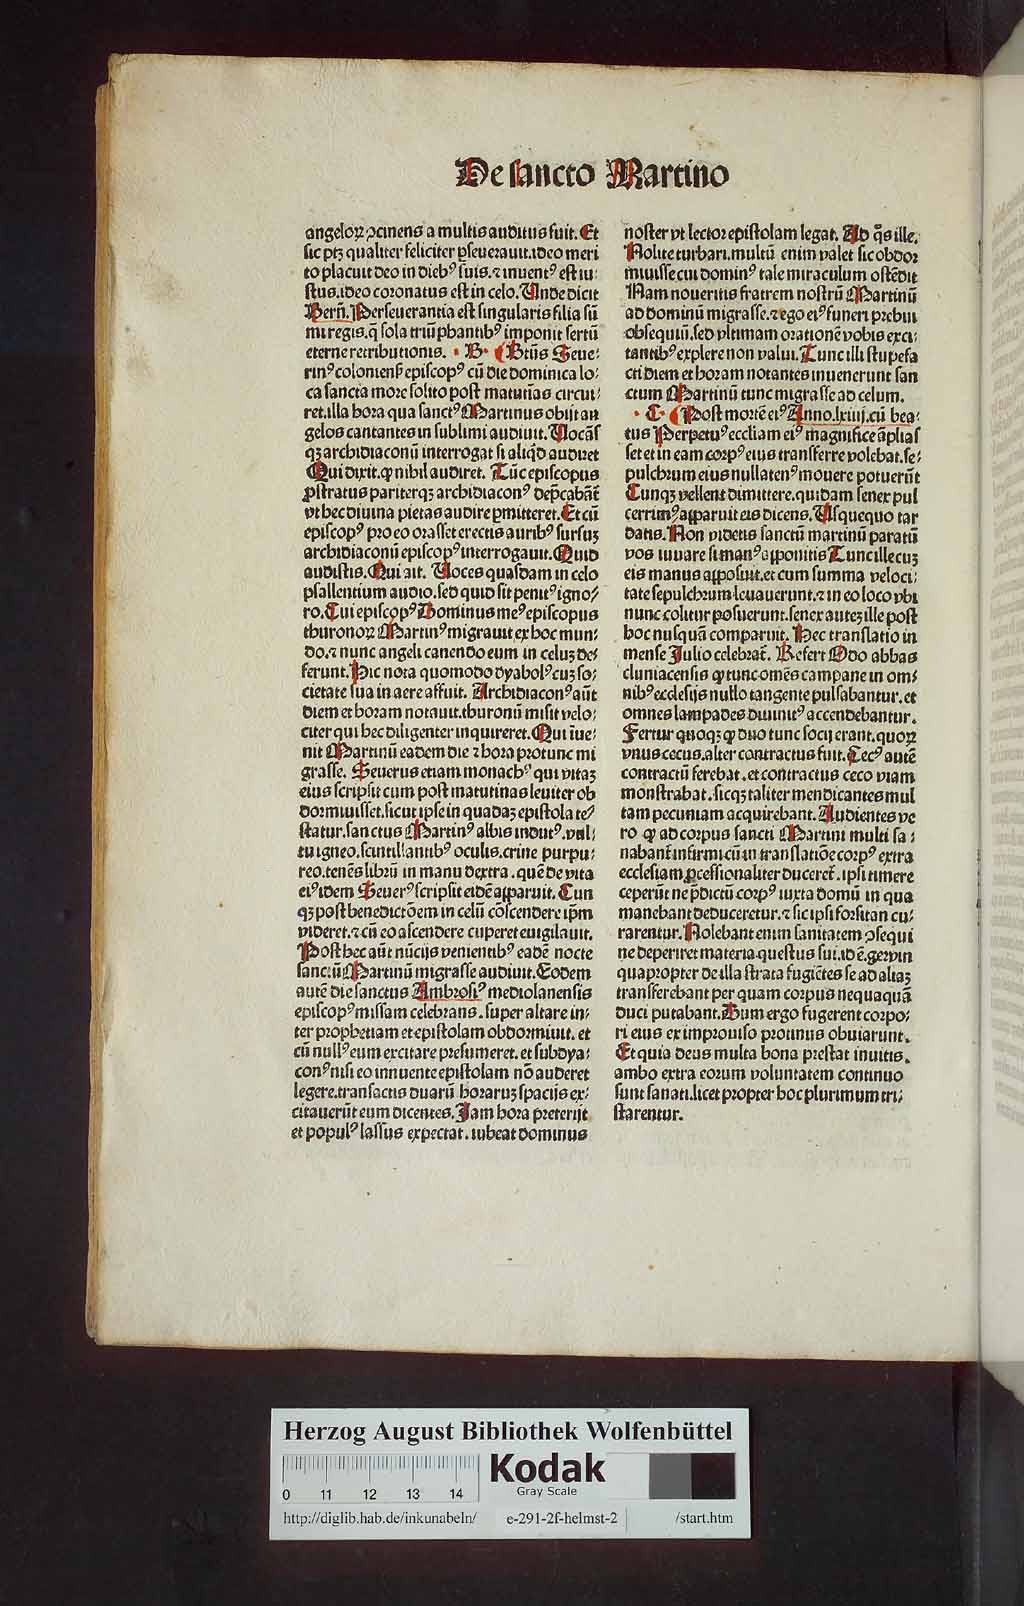 De sancto Martino
angeloꝝ ↄcinens a multis auditus fuit. Et
sic ptꝫ qualiter feliciter ꝑseuerauit. ideo meri
to placuit deo in dieb⁹ suis. ⁊ inuent⁹ est iu-
stus. ideo coronatus est in celo. Unde dicit
Bern̄. Perseuerantia est singularis filia sū
mi regis. q̄ sola triūphantib⁹ imponit sertū
eterne retributionis. · B · Btūs Seue-
rin⁹ coloniens̄ episcop⁹ cū die dominica lo-
ca sancta more solito post matutīas circui-
ret. illa hora qua sanct⁹ Martinus obijt an
gelos cantantes in sublimi audiuit. Vocās
qꝫ archidiaconū interrogat si aliqd̄ audiret
Qui dixit. ꝙ nihil audiret. Tūc episcopus
ꝓstratus pariterqꝫ archidiacon⁹ dep̄cabāt̄
vt hec diuina pietas audire ꝑmitteret. Et cū
episcop⁹ pro eo orasset erectis aurib⁹ sursuꝫ
archidiaconū episcop⁹ interrogauit. Quid
audistis. Qui ait. Voces quasdam in celo
psallentium audio. sed quid sit penit⁹ igno-
ro. Cui episcop⁹ Dominus me⁹ episcopus
thuronoꝝ Martin⁹ migrauit ex hoc mun-
do. ⁊ nunc angeli canendo eum in celuꝫ de-
ferunt. Hic nota quomodo dyabol⁹ cuꝫ so-
cietate sua in aere affuit. Archidiacon⁹ aūt
diem et horam notauit. thuronū misit velo-
citer qui hec diligenter inquireret. Qui īue-
nit Martinū eadem die ⁊ hora protunc mi
grasse. Seuerus etiam monach⁹ qui vitaꝫ
eius scripsit cum post matutinas leuiter ob
dormuisset. sicut ipse in quadaꝫ epistola te-
statur. sanctus Martin⁹ albis indut⁹. vul-
tu igneo. scintillantib⁹ oculis. crine purpu-
reo. tenēs librū in manu dextra. quē de vita
ei⁹ idem Seuer⁹ scripsit eidē apparuit. Cun
qꝫ post benedictōem in celū cōscendere ip̄m
videret. ⁊ cū eo ascendere cuperet euigilauit.
Post hec aūt nūcijs venientib⁹ eadē nocte
sanctū Martinū migrasse audiuit. Eodem
autē die sanctus Ambrosi⁹ mediolanensis
episcop⁹ missam celebrans. super altare in-
ter prophetiam et epistolam obdormiuit. et
cū null⁹ eum excitare presumeret. et subdya-
con⁹ nisi eo innuente epistolam nō auderet
legere. transactis duarū horaruꝫ spacijs ex-
citauerūt eum dicentes. Jam hora preterijt
et popul⁹ lassus expectat. iubeat dominus
noster vt lector epistolam legat. Ad q̄s ille.
Nolite turbari. multū enim valet sic obdor
miuisse cui domin⁹ tale miraculum ostēdit
Nam noueritis fratrem nostrū Martinū
ad dominū migrasse. ⁊ ego ei⁹ funeri prebui
obsequiū. sed vltimam orationē vobis exci-
tantib⁹ explere non valui. Tunc illi stupefa
cti diem et horam notantes inuenerunt san
ctum Martinū tunc migrasse ad celum.
· C · Post mortē ei⁹ Anno. lxiiij. cū bea-
tus Perpetu⁹ eccliam ei⁹ magnifice āplias
set et in eam corp⁹ eius transferre volebat. se-
pulchrum eius nullaten⁹ mouere potuerūt
Cunqꝫ vellent dimittere. quidam senex pul
cerrim⁹ apparuit eis dicens. Usquequo tar
datis. Non videtis sanctū martinū paratū
vos iuuare si man⁹ apponitis Tunc illecuꝫ
eis manus apposuit. et cum summa veloci-
tate sepulchrum leuauerunt. ⁊ in eo loco vbi
nunc colitur posuerunt. senex auteꝫ ille post
hoc nusquā comparuit. Hec translatio in
mense Julio celebrat̄. Refert Odo abbas
cluniacensis ꝙ tunc omēs campane in om-
nib⁹ ecclesijs nullo tangente pulsabantur. et
omnes lampades diuinit⁹ accendebantur.
Fertur quoqꝫ ꝙ duo tunc socij erant. quoꝝ
vnus cecus. alter contractus fuit. Cec⁹ autē
contractū ferebat. et contractus ceco viam
monstrabat. sicqꝫ taliter mendicantes mul
tam pecuniam acquirebant. Audientes ve
ro ꝙ ad corpus sancti Martini multi sa-
nabant̄ infirmi. cū in translatiōe corp⁹ extra
ecclesiam ꝓcessionaliter duceret̄. ipsi timere
ceperūt ne p̄dictū corp⁹ iuxta domū in qua
manebant deduceretur. ⁊ sic ipsi forsitan cu-
rarentur. Nolebant enim sanitatem ↄsequi
ne deperiret materia questus sui. id ē. gewin
quapropter de illa strata fugiētes se ad aliaꝫ
transferebant per quam corpus nequaquā
duci putabant. Dum ergo fugerent corpo-
ri eius ex improuiso protinus obuiarunt.
Et quia deus multa bona prestat inuitis.
ambo extra eorum voluntatem continuo
sunt sanati. licet propter hoc plurimum tri-
starentur.
Herzog August Bibliothek Wolfenbüttel
Kodak
Gray Scale
0 11 12 13 14
http://diglib.hab.de/inkunabeln/ e-291-2f-helmst-2 /start.htm